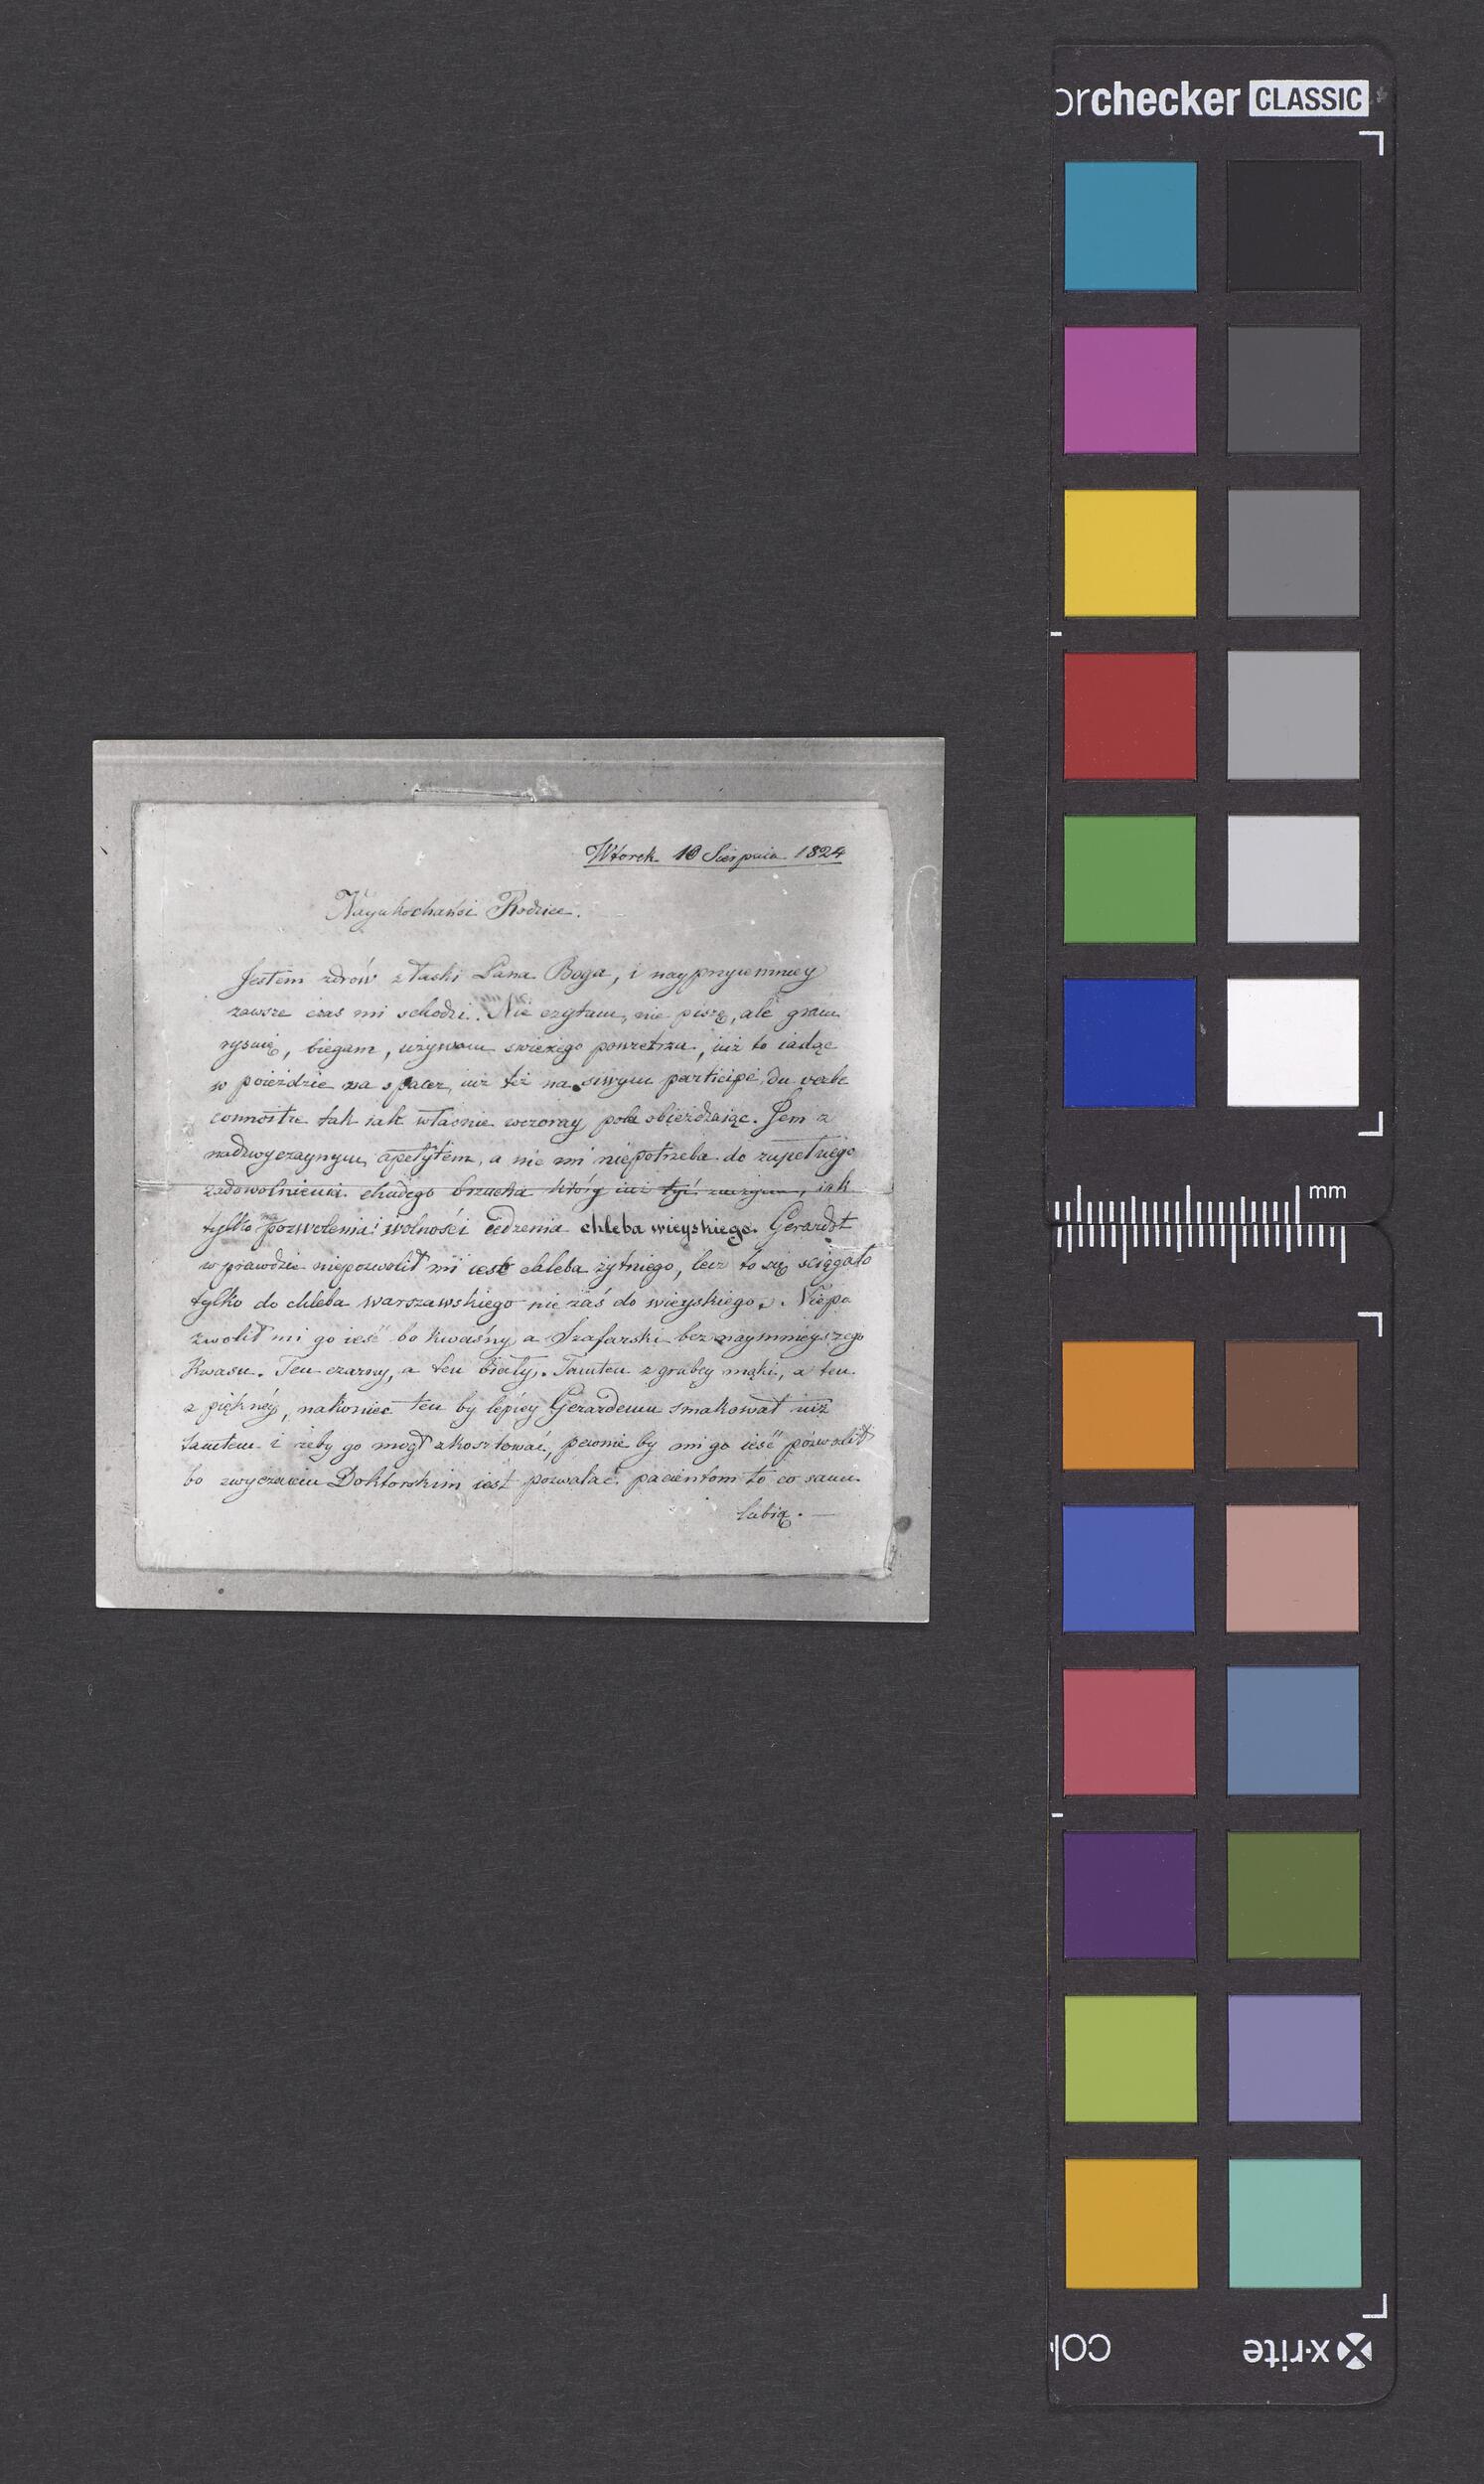 orchecker CLASSIC
Wtorek 10 Sierpnia 1824
Nayukochańsi Rodzice.
Jestem zdrów z łaski Pana Boga, i nayprzyiemniey
zawsze czas mi schodzi. Nie czytam, nie piszę, ale gram
rysuię, biegam, używam swieżego powietrza, iuż to iadąc
w poieździe na spacer, iuż też na siwym participé du verbe
connoître tak iak własnie wczoray pola obieżdzaiąc. Jem z
nadzwyczaynym apetytem, a nic mi niepotrzeba do zupełnego
zadowolnienia chudego brzucha który iuż tyć zaczyna, iak
tylko pozwolenia i wolności iedzenia chleba wieyskiego. Gerardot
wprawdzie niepozwolił mi iesć chleba żytniego, lecz to się sciągało
tylko do chleba warszawskiego nie zaś do wieyskiego. Niepo
zwolił mi go ieść bo kwaśny, a Szafarski bez naymnieyszego
kwasu. Ten czarny, a ten biały. Tamten z grubey mąki, a ten
z pięknéy, nakoniec ten by lepiey Gerardemu smakował niż
tamten i żeby go mogł zkosztować, pewnie by mi go ieść pozwolił
bo zwyczaiem Doktorskim iest pozwalać pacientom to co sami
lubią. —
mm
x·rite
col